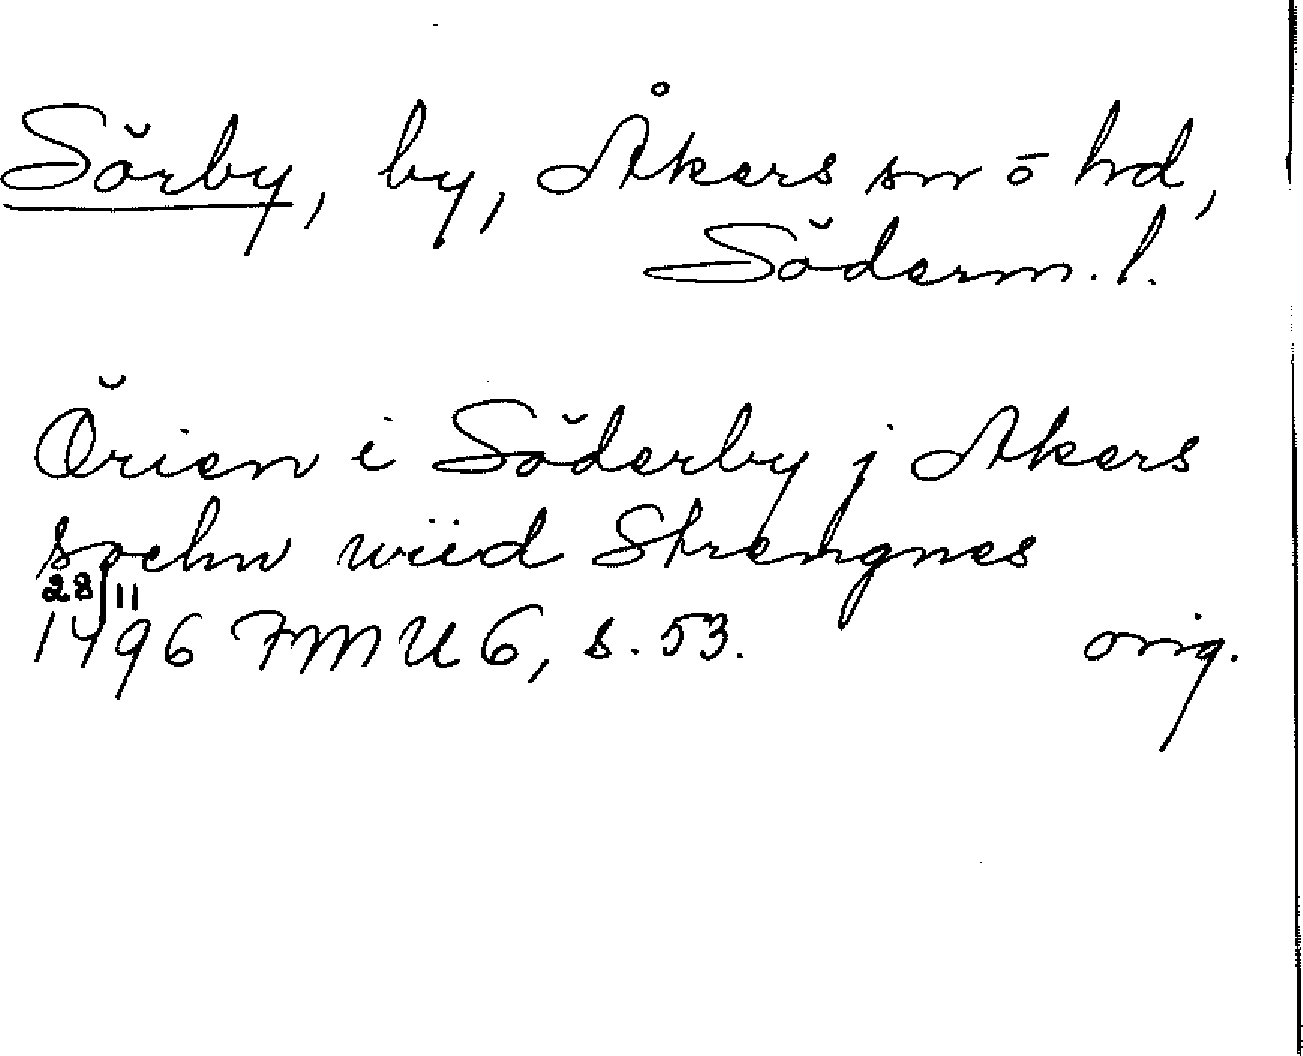 Sörby, by, Åkers sn o hd,
Söderm. l.
Örien i Söderby j Akers
sochn wiid Strengnes
28/11
1496 FMU 6, s. 53. orig.